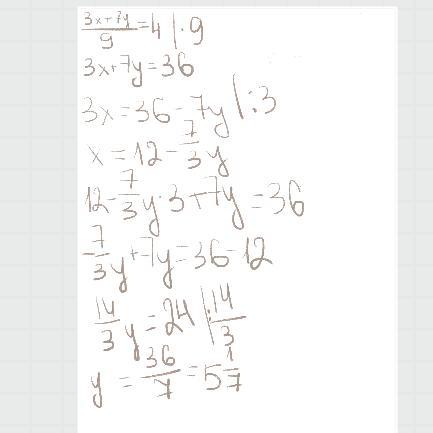 (3x+7y)/9=4 |·9
3x+7y=36
3x=36-7y |:3
x=12-7/3y
12-7/3y·3+7y=36
-7/3y+7y=36-12
14/3y=24 |:14/3
y=36/7=5 1/7